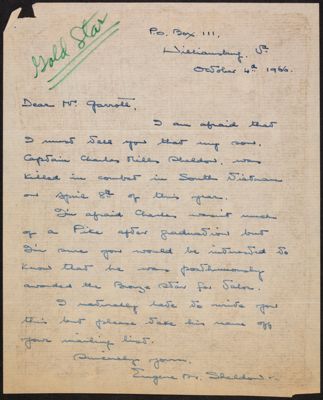 Gold Star
P.O. Box 111.
Williamsburg, Va
October 4th 1966.
Dear Mr. Garrott,
I am afraid that
I must tell you that my son,
Captain Charles Mills Sheldon, was
killed in combat in South Vietnam
on April 8th of this year.
I'm afraid Charles wasn't much
of a Pike after graduation but
I'm sure you would be interested to
know that he was posthumously
awarded the Bronze Star for Valor.
I naturally hate to write you
this but please take his name off
your mailing list.
Sincerely yours,
Eugene M. Sheldon